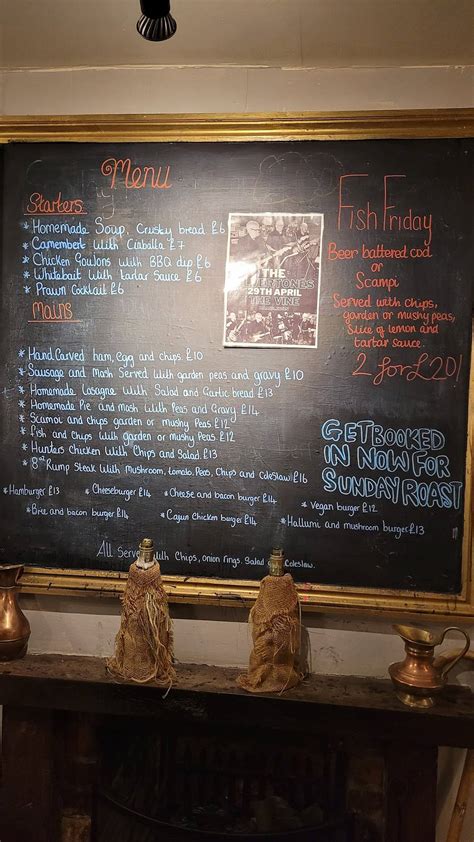 Menu
Starters
* Homemade Soup, Crusky bread £6
* Camembert With Ciabatta £7
* Chicken Goujons With BBQ dip £6
* Whitebait With tartar Sauce £6
* Prawn Cocktail £6
Mains
* Hand Carved ham, Egg and chips £10
* Sausage and Mash Served With garden peas and gravy £10
* Homemade Lasagne With Salad and Garlic bread £13
* Homemade Pie and mash With Peas and Gravy £14
* Scampi and chips garden or mushy Peas £12
* Fish and Chips With garden or mushy Peas £12
* Hunters chicken With Chips and Salad £13
* 8oz Rump Steak With Mushroom, tomato, Peas, Chips and Coleslaw £16
* Hamburger £13 * Cheeseburger £14 * Cheese and bacon burger £14 * Vegan burger £12
* Brie and bacon burger £14 * Cajun Chicken burger £14 * Hallumi and mushroom burger £13
All Served With Chips, onion rings, Salad Coleslaw.
THE
29TH APRIL
THE VINE
Fish Friday
Beer battered cod
or
Scampi
Served with chips,
garden or mushy peas,
Slice of lemon and
tartar sauce.
2 for £20!
GET BOOKED
IN NOW FOR
SUNDAY ROAST